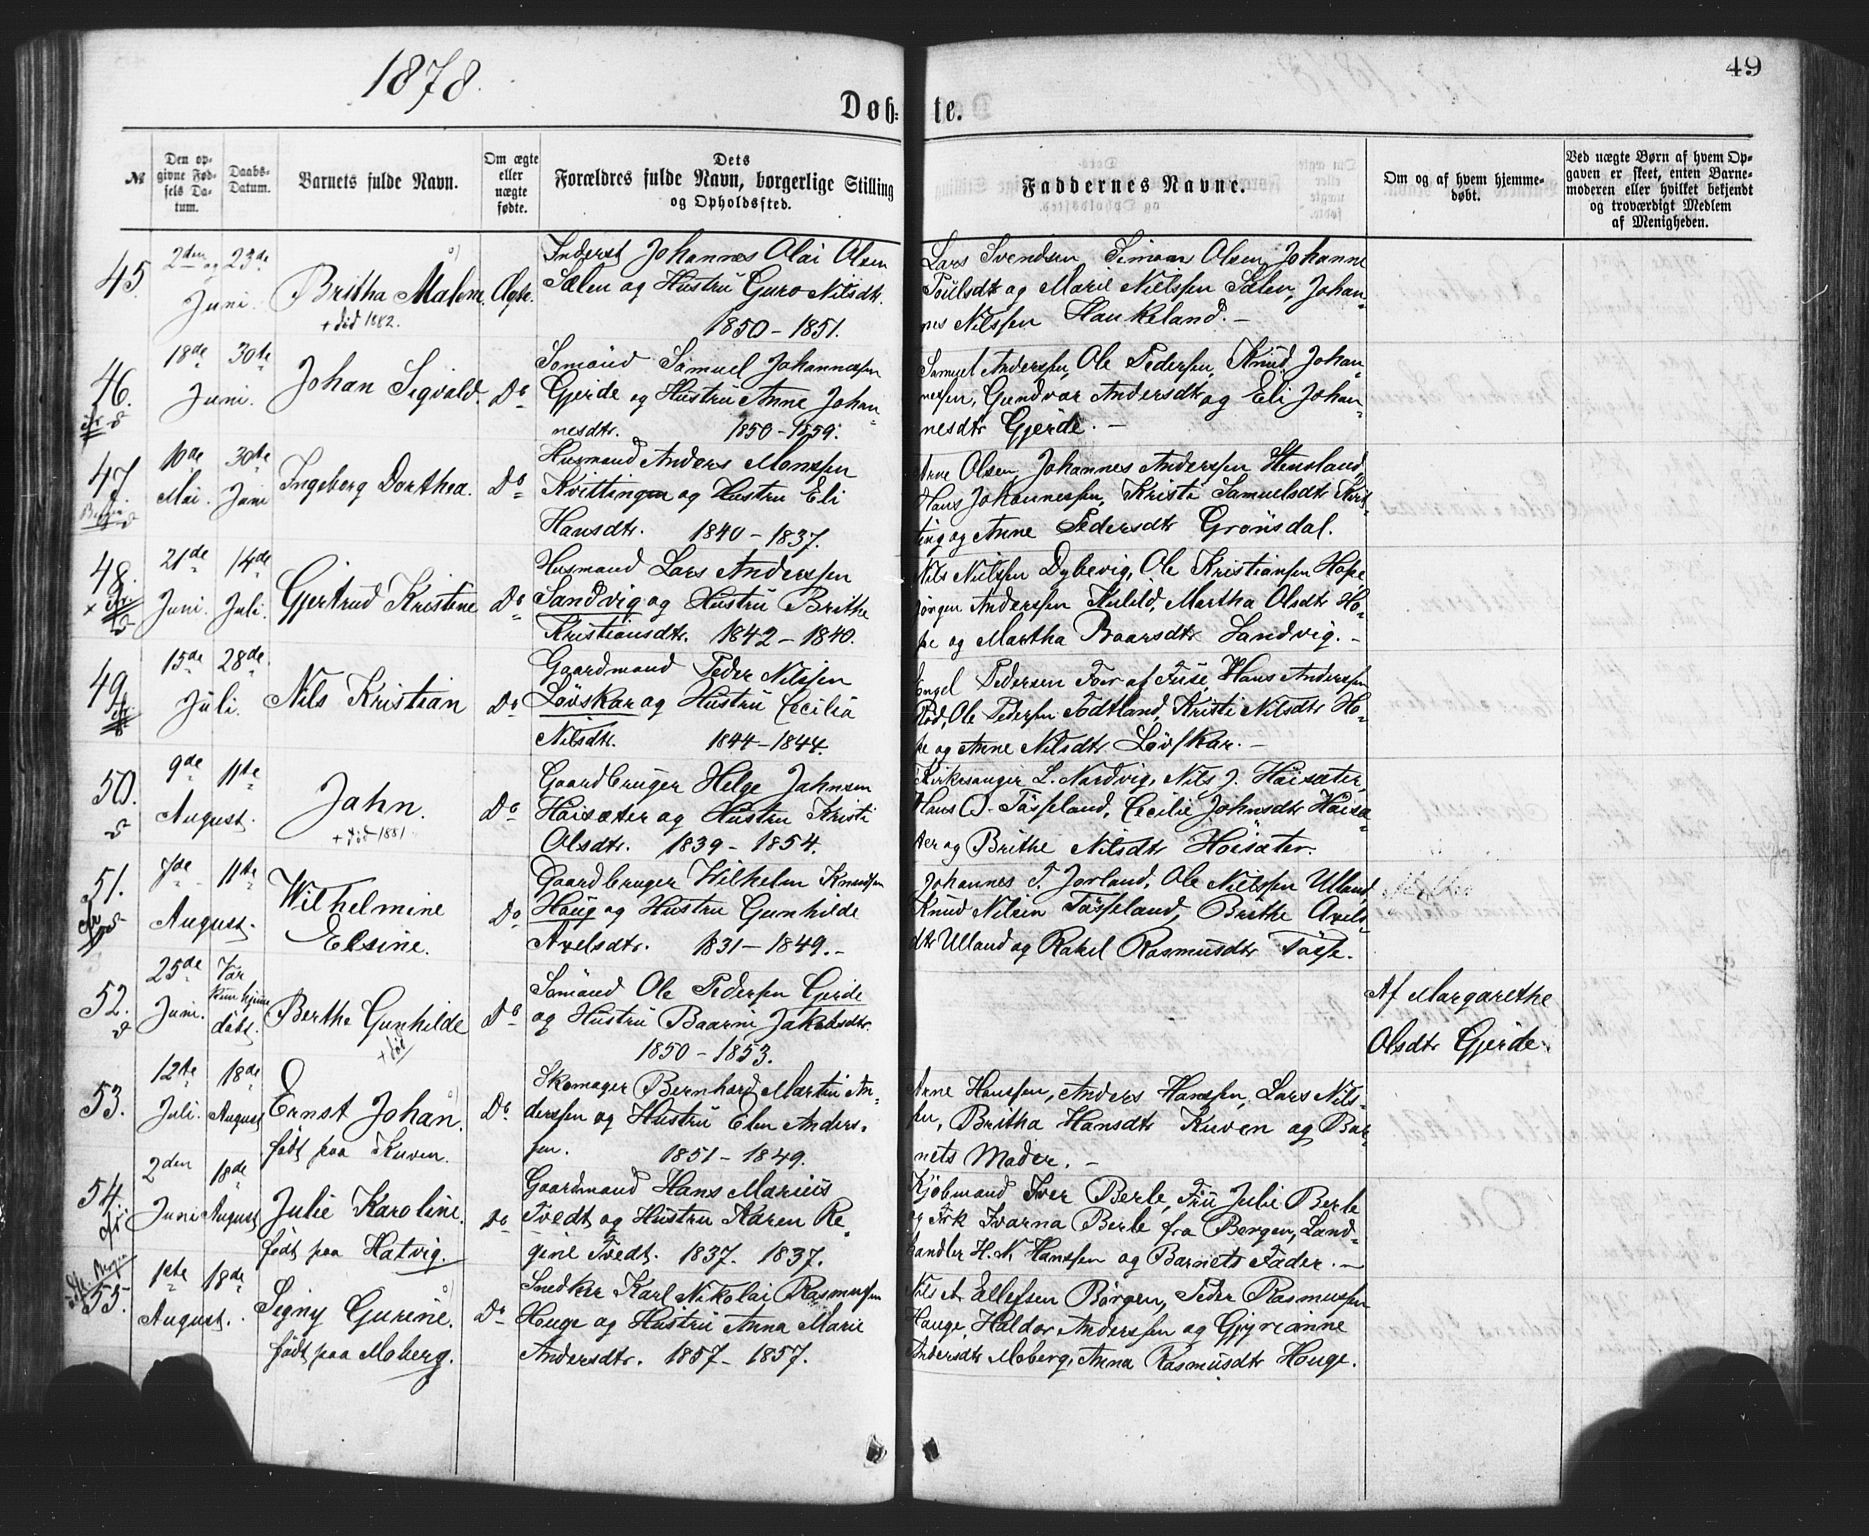 1878.
49
Døb-
te.
№
Den op-
givne Fød-
sels Da-
tum.
Daabs-
Datum.
Barnets fulde Navn.
Om ægte
eller
uægte
fødte.
Dets
Forældres fulde Navn, borgerlige Stilling
og Opholdssted.
Faddernes Navne.
Om og af hvem hjemme-
døbt.
Ved uægte Børn af hvem Op-
gaven er skeet, enten Barne-
moderen eller hvilket bekjendt
og troværdigt Medlem
af Menigheden.
45.
2den og 23de
Juni.
Britha Malene.
+ død 1882.
Ægte.
Inderst Johannes Olai Olsen
Sælen og Hustru Guro Nilsdtr.
1850 - 1851.
Lars Svendsen, Simon Olsen, Johanne
Poulsdtr og Marie Nielssen Sælen, Johan-
nes Nilssen Haukeland. -
46.
18de 30te
Juni.
Johan Sigvald.
Do
Sømand Samuel Johannessen
Gjerde og Hustru Anne Johan-
nesdtr. 1850 - 1859.
Samuel Anderssen, Ole Pederssen, Knud Johan-
nessen, Gundvor Andersdtr og Eli Johan-
nesdtr Gjerde. -
47.
10de 30te
Mai. Juni
Ingeborg Dorthea.
Do
Husmand Anders Monssen
Kvittingen og Hustru Eli
Hansdtr. 1840 - 1837.
Arne Olsen, Johannes Anderssen Hensland,
Hans Johannessen, Kristi Samuelsdtr Kvit-
ting og Anne Pedersdtr Grønsdal.
48.
21de 14de
Juni. Juli.
Gjertrud Kristine
Do
Husmand Lars Anderssen
Sandvig og Hustru Brithe
Kristiansdtr. 1842 - 1840.
Nils Nielssen Dybevig, Ole Kristianssen Hope,
Jørgen Anderssen Kulild, Martha Olsdtr Ho-
pe og Martha Baarsdtr Sandvig. -
49.
15de 28de
Juli.
Nils Kristian
Do
Gaardmand Peder Nilssen
Løvskar og Hustru Cecilia
Nilsdtr. 1844 - 1844.
Engel Pedersen Tor af Fuse, Hans Anderssen
Rød, Ole Pederssen Todtland, Kristi Nilsdtr Ho-
pe og Anne Nilsdtr Løvskar. -
50.
9de 11te
August.
Jahn.
+ død 1881.
Do
Gaardbruger Helge Jahnsen
Høisæter og Hustru Kristi
Olsdtr. 1839 - 1854.
Kirkesanger L. Nordvig, Nils J. Høisæter,
Hans O. Tøsseland, Cecilie Johnsdtr Høisæ-
ter og Brithe Nilsdtr Høisæter.
51.
7de 11te
August.
Wilhelmine
Elsine.
Do
Gaardbruger Wilhelm Knudsen
Houg og Hustru Gunhilde
Axelsdtr. 1831 - 1849. -
Johannes T. Jorland, Ole Nielssen Ulland,
Knud Nilsen Tøsseland, Brithe Axels-
dtr Ulland og Rakel Rasmusdtr Tøsse.
52.
25de Var
Juni. kun hjemme
døbt.
Berthe Gunhilde
+ død
Do
Sømand Ole Pederssen Gjerde
og Hustru Baarni Jakobsdtr.
1850 - 1853.
Af Margarethe
Olsdtr Gjerde.
53.
12te 18de
Juli. August
Ernst Johan.
født paa Kuven.
Do
Skomager Bernhard Martin An-
derssen og Hustru Elen Anders-
sen. 1851 - 1849.
Arne Hanssen, Anders Hanssen, Lars Nils-
sen, Britha Hansdtr Kuven og Bar-
nets Moder. -
54.
2den 18de
Juni August
Julie Karoline.
født paa Hatvig.
Do
Gaardmand Hans Marius
Tvedt og Hustru Karen Re-
gine Tvedt. 1837. 1837.
Kjøbmand Iver Berle, Fru Julie Berle
og Frk Ivarna Berle fra Bergen, Land-
handler H. N. Hanssen og Barnets Fader. -
55.
1ste 18de
August.
Signy Gurine.
født paa Moberg.
Do
Snedker Karl Nikolai Rasmussen
Houge og Hustru Anna Marie
Andersdtr. 1857 - 1857.
Nils A Ellefsen Børgen, Peder Rasmussen
Houge, Haldor Anderssen og Gjyrianne
Andersdtr Moberg, Anna Rasmusdtr Houge.